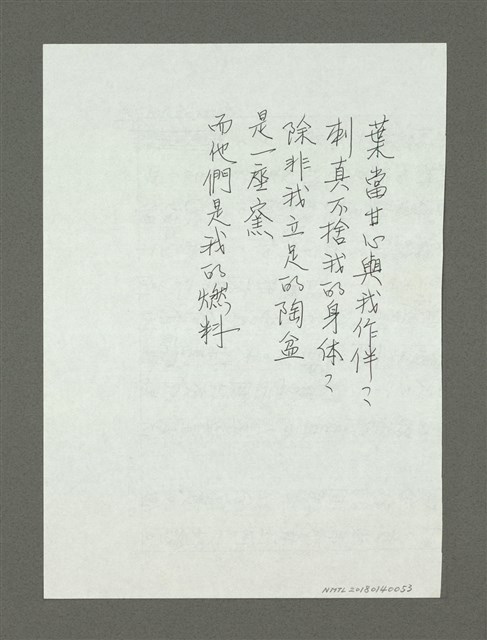 葉當甘心與我作伴？
刺真不捨我的身体？
除非我立足的陶盆
是一座窯
而他們是我的燃料
NMTL20180140053